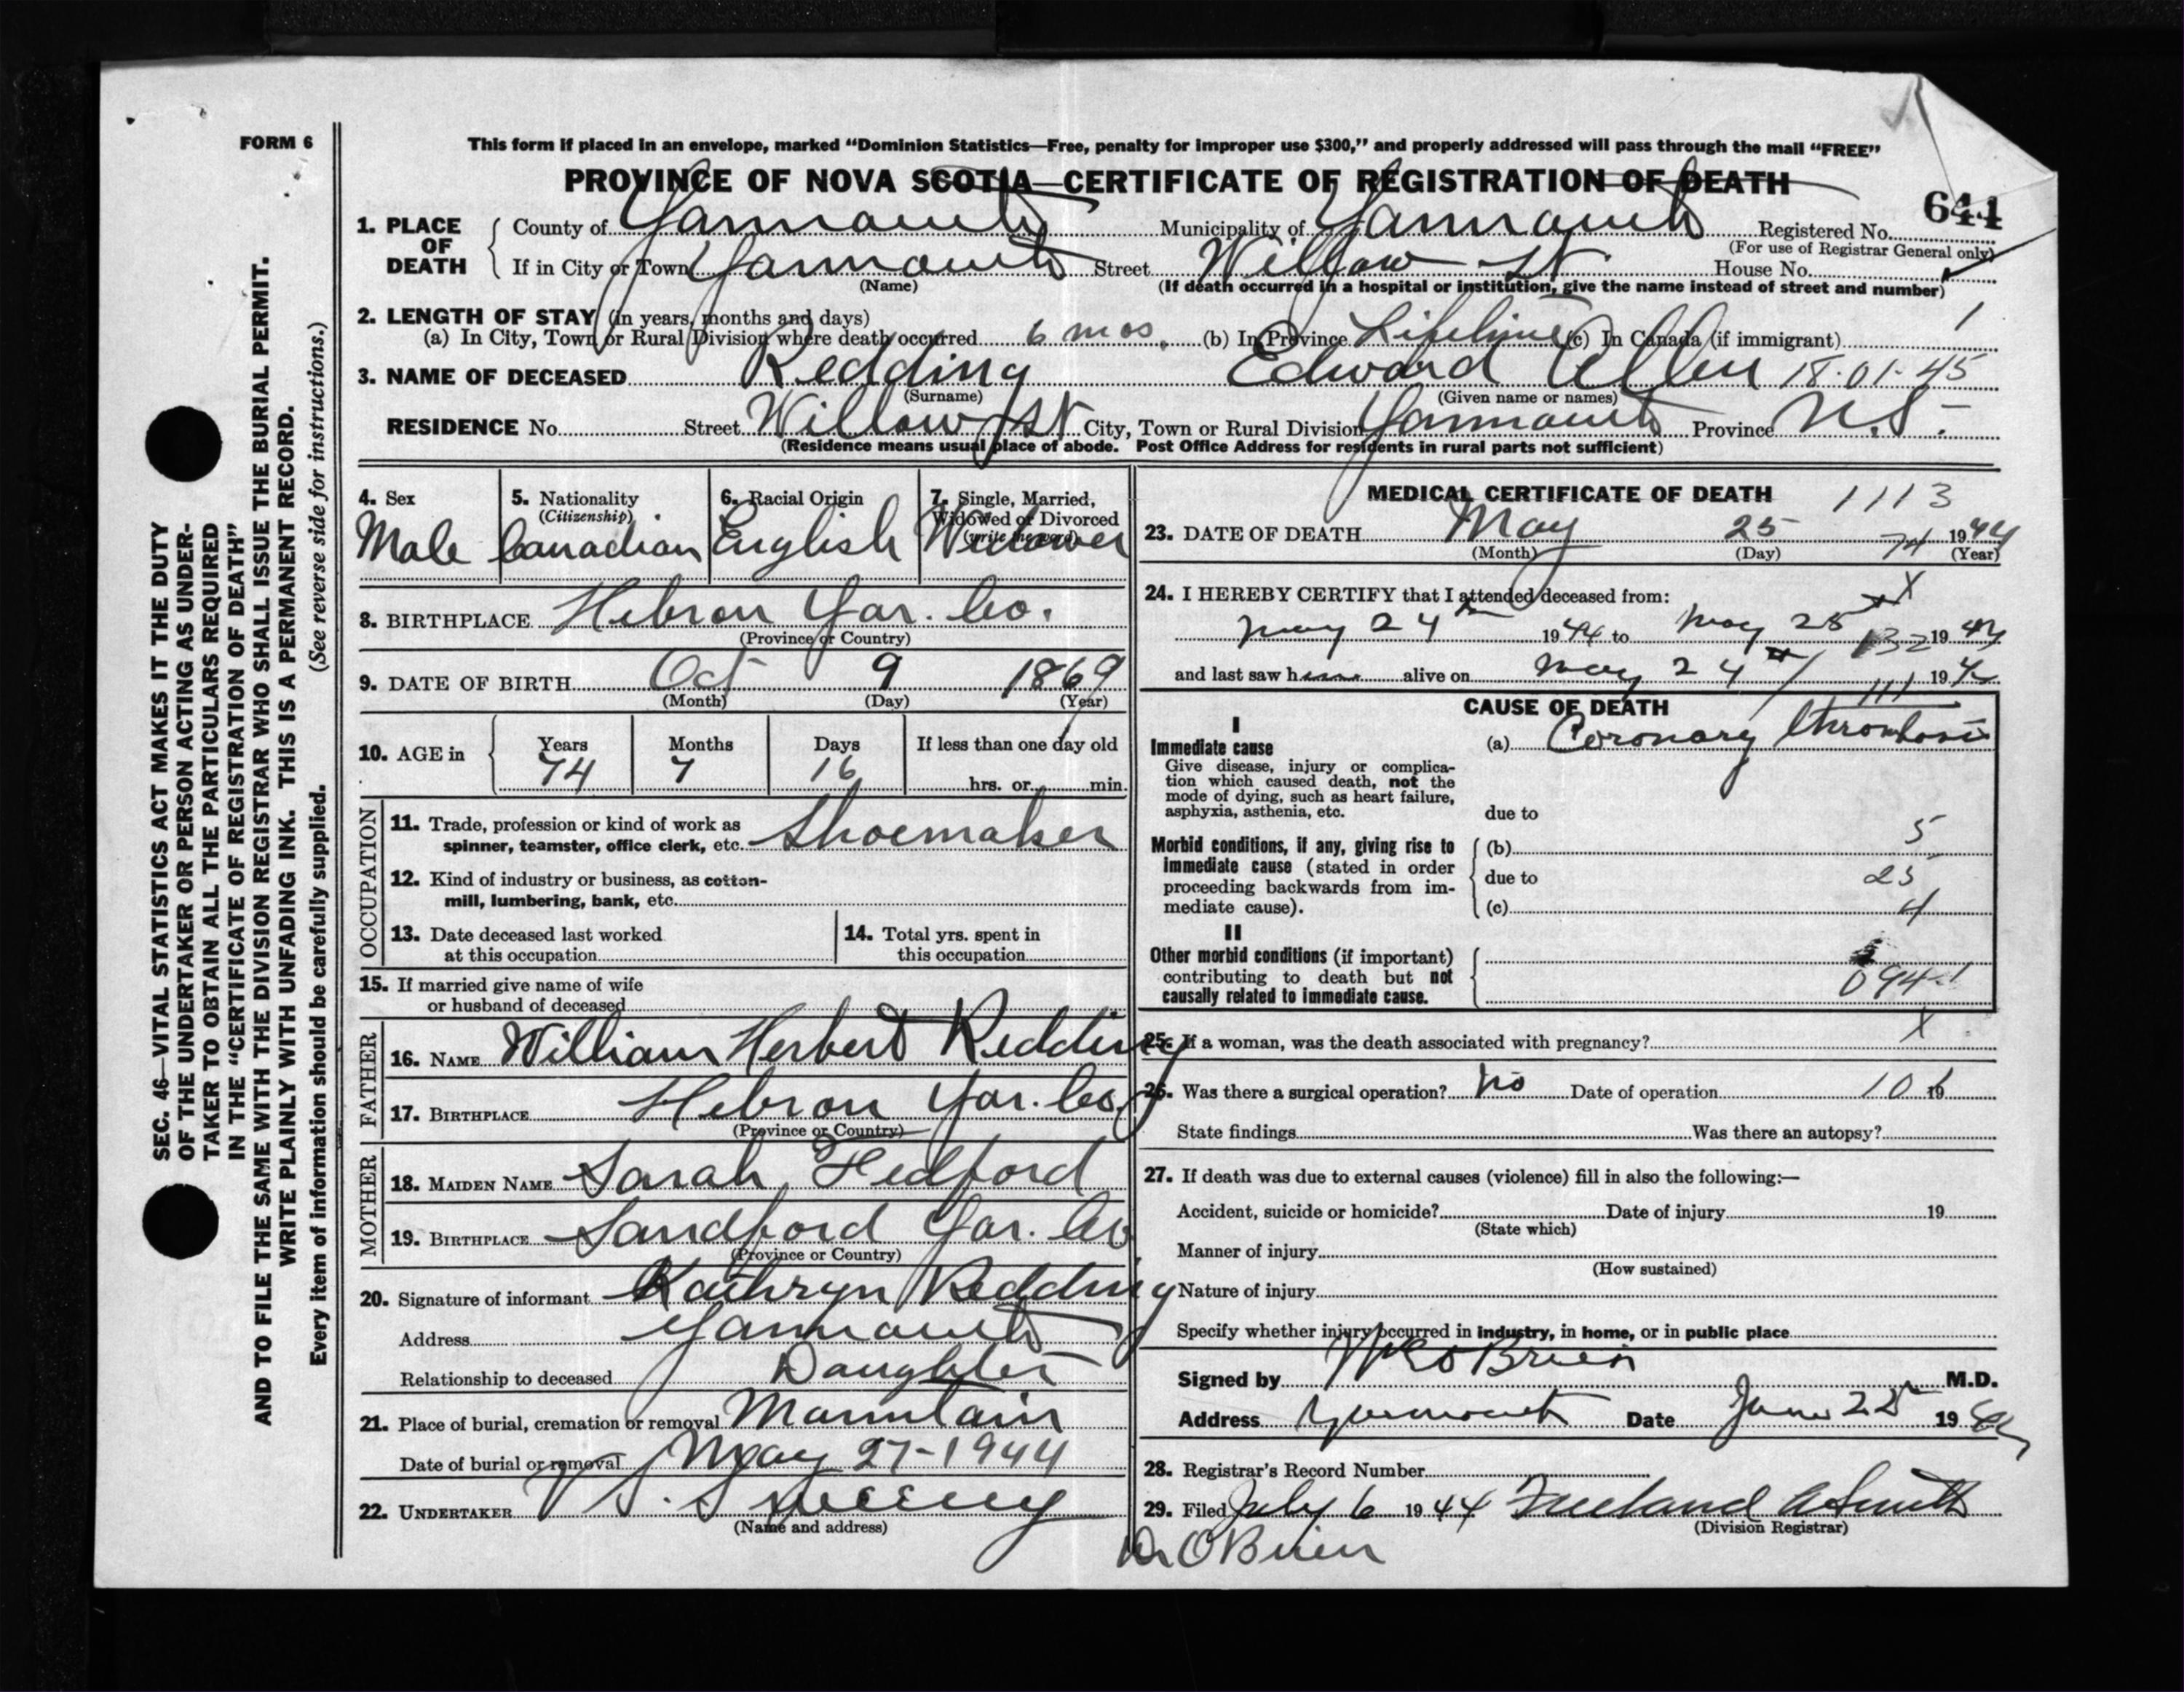 FORM 6
This form if placed in an envelope, marked "Dominion Statistics—Free, penalty for improper use $300," and properly addressed will pass through the mail "FREE"
PROVINCE OF NOVA SCOTIA—CERTIFICATE OF REGISTRATION OF DEATH
644
1. PLACE OF DEATH County of Yarmouth Municipality of Yarmouth Registered No.
(For use of Registrar General only)
If in City or Town Yarmouth Street Willow St. House No.
(Name) (If death occurred in a hospital or institution, give the name instead of street and number)
2. LENGTH OF STAY (in years, months and days)
(a) In City, Town or Rural Division where death occurred 6 mos. (b) In Province Lifetime (c) In Canada (if immigrant) 1
3. NAME OF DECEASED Redding Edward Allen 18-01-45
(Surname) (Given name or names)
RESIDENCE No. Street Willow St City, Town or Rural Division Yarmouth Province N.S.
(Residence means usual place of abode. Post Office Address for residents in rural parts not sufficient)
4. Sex 5. Nationality (Citizenship) 6. Racial Origin 7. Single, Married, Widowed or Divorced (write the word)
Male Canadian English Widower
8. BIRTHPLACE Hebron Yar. Co.
(Province or Country)
9. DATE OF BIRTH Oct 9 1869
(Month) (Day) (Year)
10. AGE in Years Months Days If less than one day old
74 7 16 hrs. or min.
OCCUPATION
11. Trade, profession or kind of work as
spinner, teamster, office clerk, etc. Shoemaker
12. Kind of industry or business, as cotton-
mill, lumbering, bank, etc.
13. Date deceased last worked at this occupation
14. Total yrs. spent in this occupation
15. If married give name of wife
or husband of deceased
FATHER
16. NAME William Herbert Redding
17. BIRTHPLACE Hebron Yar. Co.
(Province or Country)
MOTHER
18. MAIDEN NAME Sarah Hedford
19. BIRTHPLACE Sandford Yar. Co
(Province or Country)
20. Signature of informant Kathryn Redding
Address Yarmouth
Relationship to deceased Daughter
21. Place of burial, cremation or removal Mountain
Date of burial or removal May 27-1944
22. UNDERTAKER V S. Sweeny
(Name and address)
MEDICAL CERTIFICATE OF DEATH 1113
23. DATE OF DEATH May 25 74 1944
(Month) (Day) (Year)
24. I HEREBY CERTIFY that I attended deceased from: X
May 24th 1944 to May 25 132 1944
and last saw him alive on May 24th 1944
111
CAUSE OF DEATH
I
Immediate cause
Give disease, injury or complica-
tion which caused death, not the
mode of dying, such as heart failure,
asphyxia, asthenia, etc.
(a) Coronary thrombosis
due to
Morbid conditions, if any, giving rise to
immediate cause (stated in order
proceeding backwards from im-
mediate cause).
(b) 5
due to 25
(c) 4
II
Other morbid conditions (if important)
contributing to death but not
causally related to immediate cause.
094-1
25. If a woman, was the death associated with pregnancy? X
26. Was there a surgical operation? No Date of operation 101 19
State findings Was there an autopsy?
27. If death was due to external causes (violence) fill in also the following:—
Accident, suicide or homicide? Date of injury 19
(State which)
Manner of injury
(How sustained)
Nature of injury
Specify whether injury occurred in industry, in home, or in public place
Signed by O'Brien M.D.
Address Yarmouth Date June 25 1944
28. Registrar's Record Number
29. Filed July 6 1944 Freeland A Smith
(Division Registrar)
Dr O'Brien
SEC. 46—VITAL STATISTICS ACT MAKES IT THE DUTY
OF THE UNDERTAKER OR PERSON ACTING AS UNDER-
TAKER TO OBTAIN ALL THE PARTICULARS REQUIRED
IN THE "CERTIFICATE OF REGISTRATION OF DEATH"
AND TO FILE THE SAME WITH THE DIVISION REGISTRAR WHO SHALL ISSUE THE BURIAL PERMIT.
WRITE PLAINLY WITH UNFADING INK. THIS IS A PERMANENT RECORD.
Every item of information should be carefully supplied. (See reverse side for instructions.)